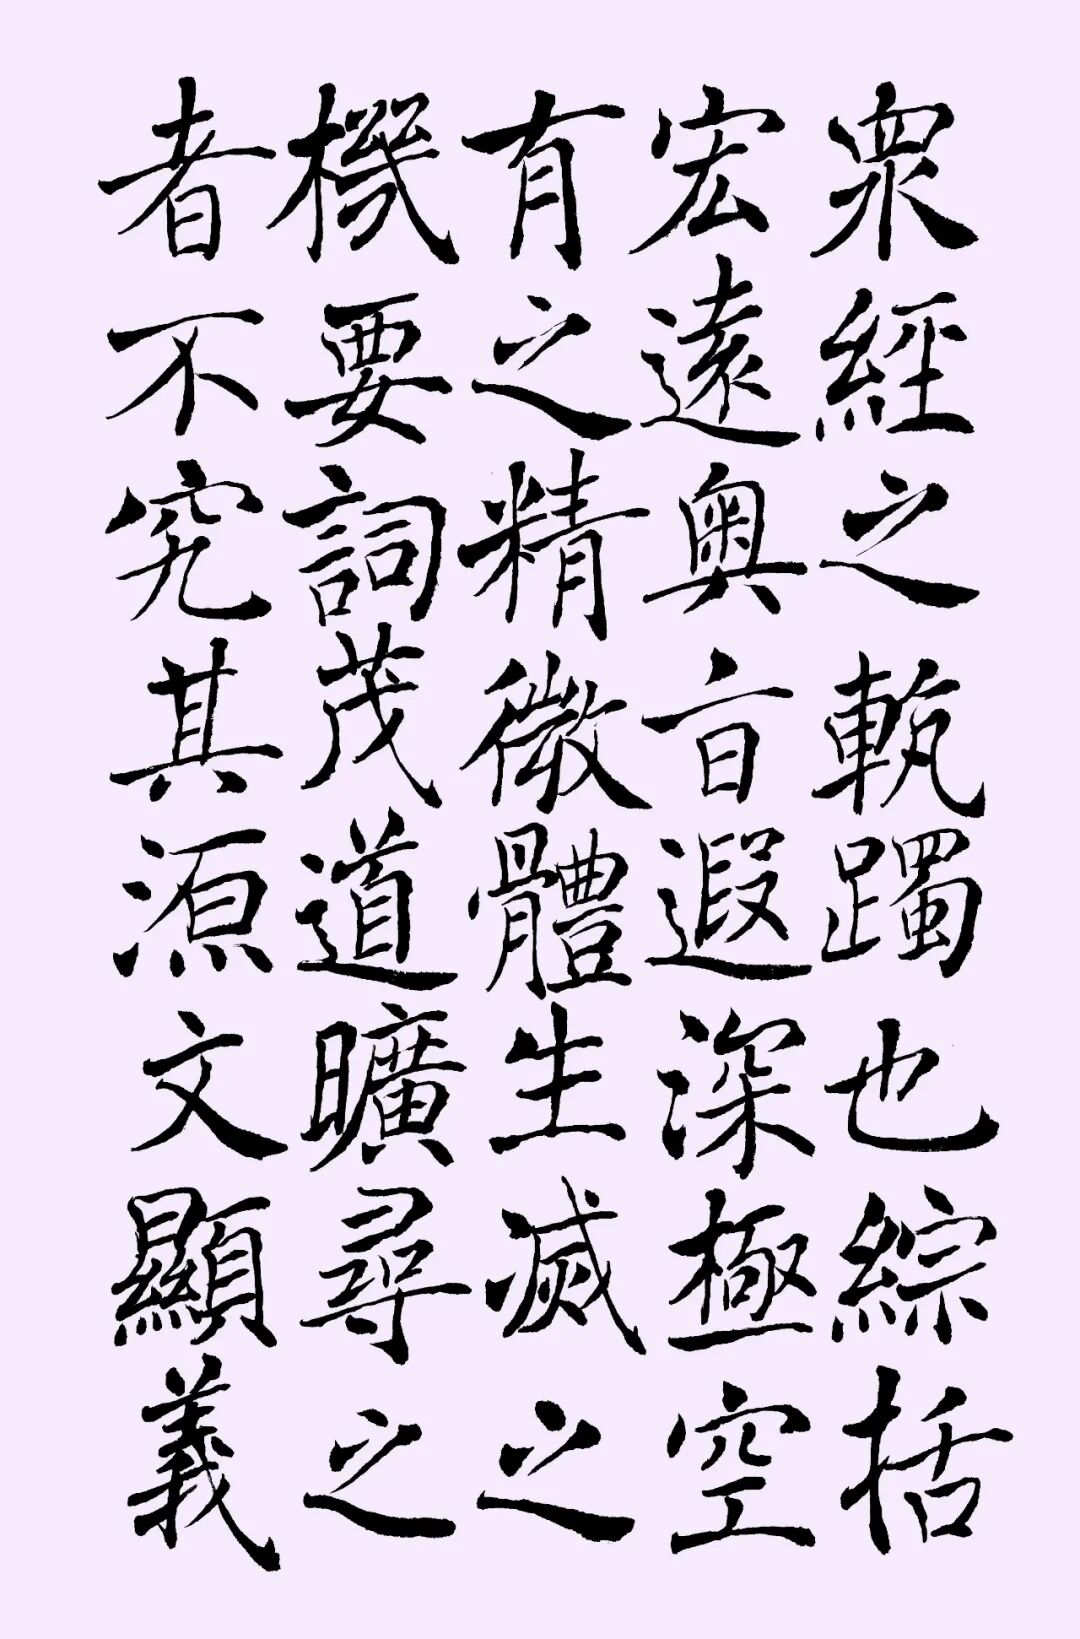 眾經之軌躅也綜括
宏遠奧旨遐深極空
有之精微體生滅之
機要詞茂道曠尋之
者不究其源文顯義